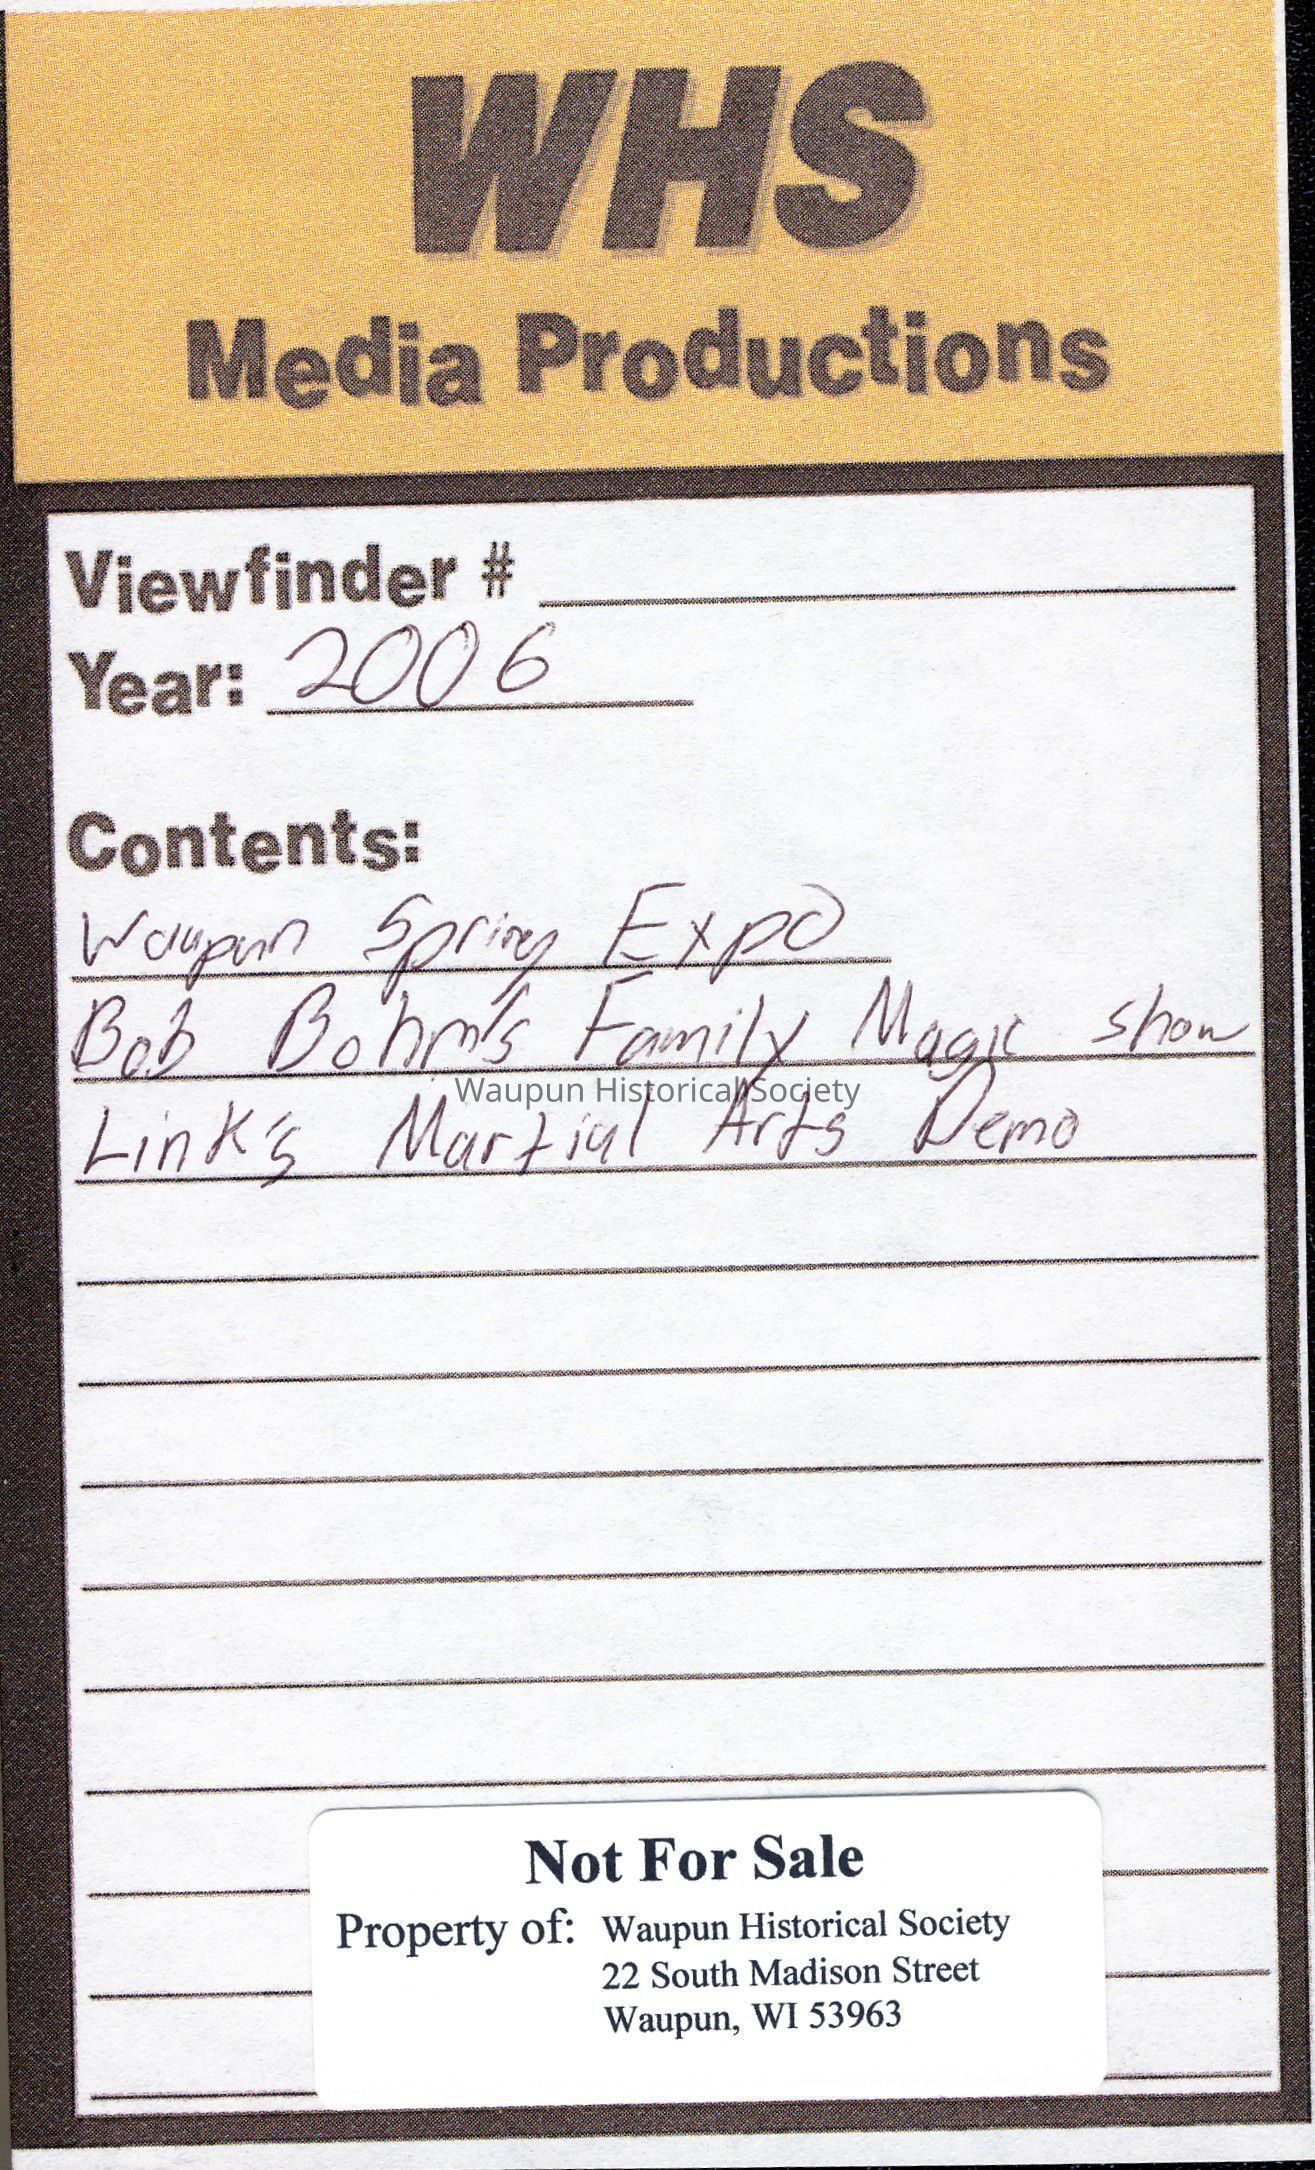 WHS
Media Productions
Viewfinder #
Year: 2006
Contents:
Waupun Spring Expo
Bob Bohm's Family Magic show
Waupun Historical Society
Link's Martial Arts Demo
Not For Sale
Property of: Waupun Historical Society
22 South Madison Street
Waupun, WI 53963